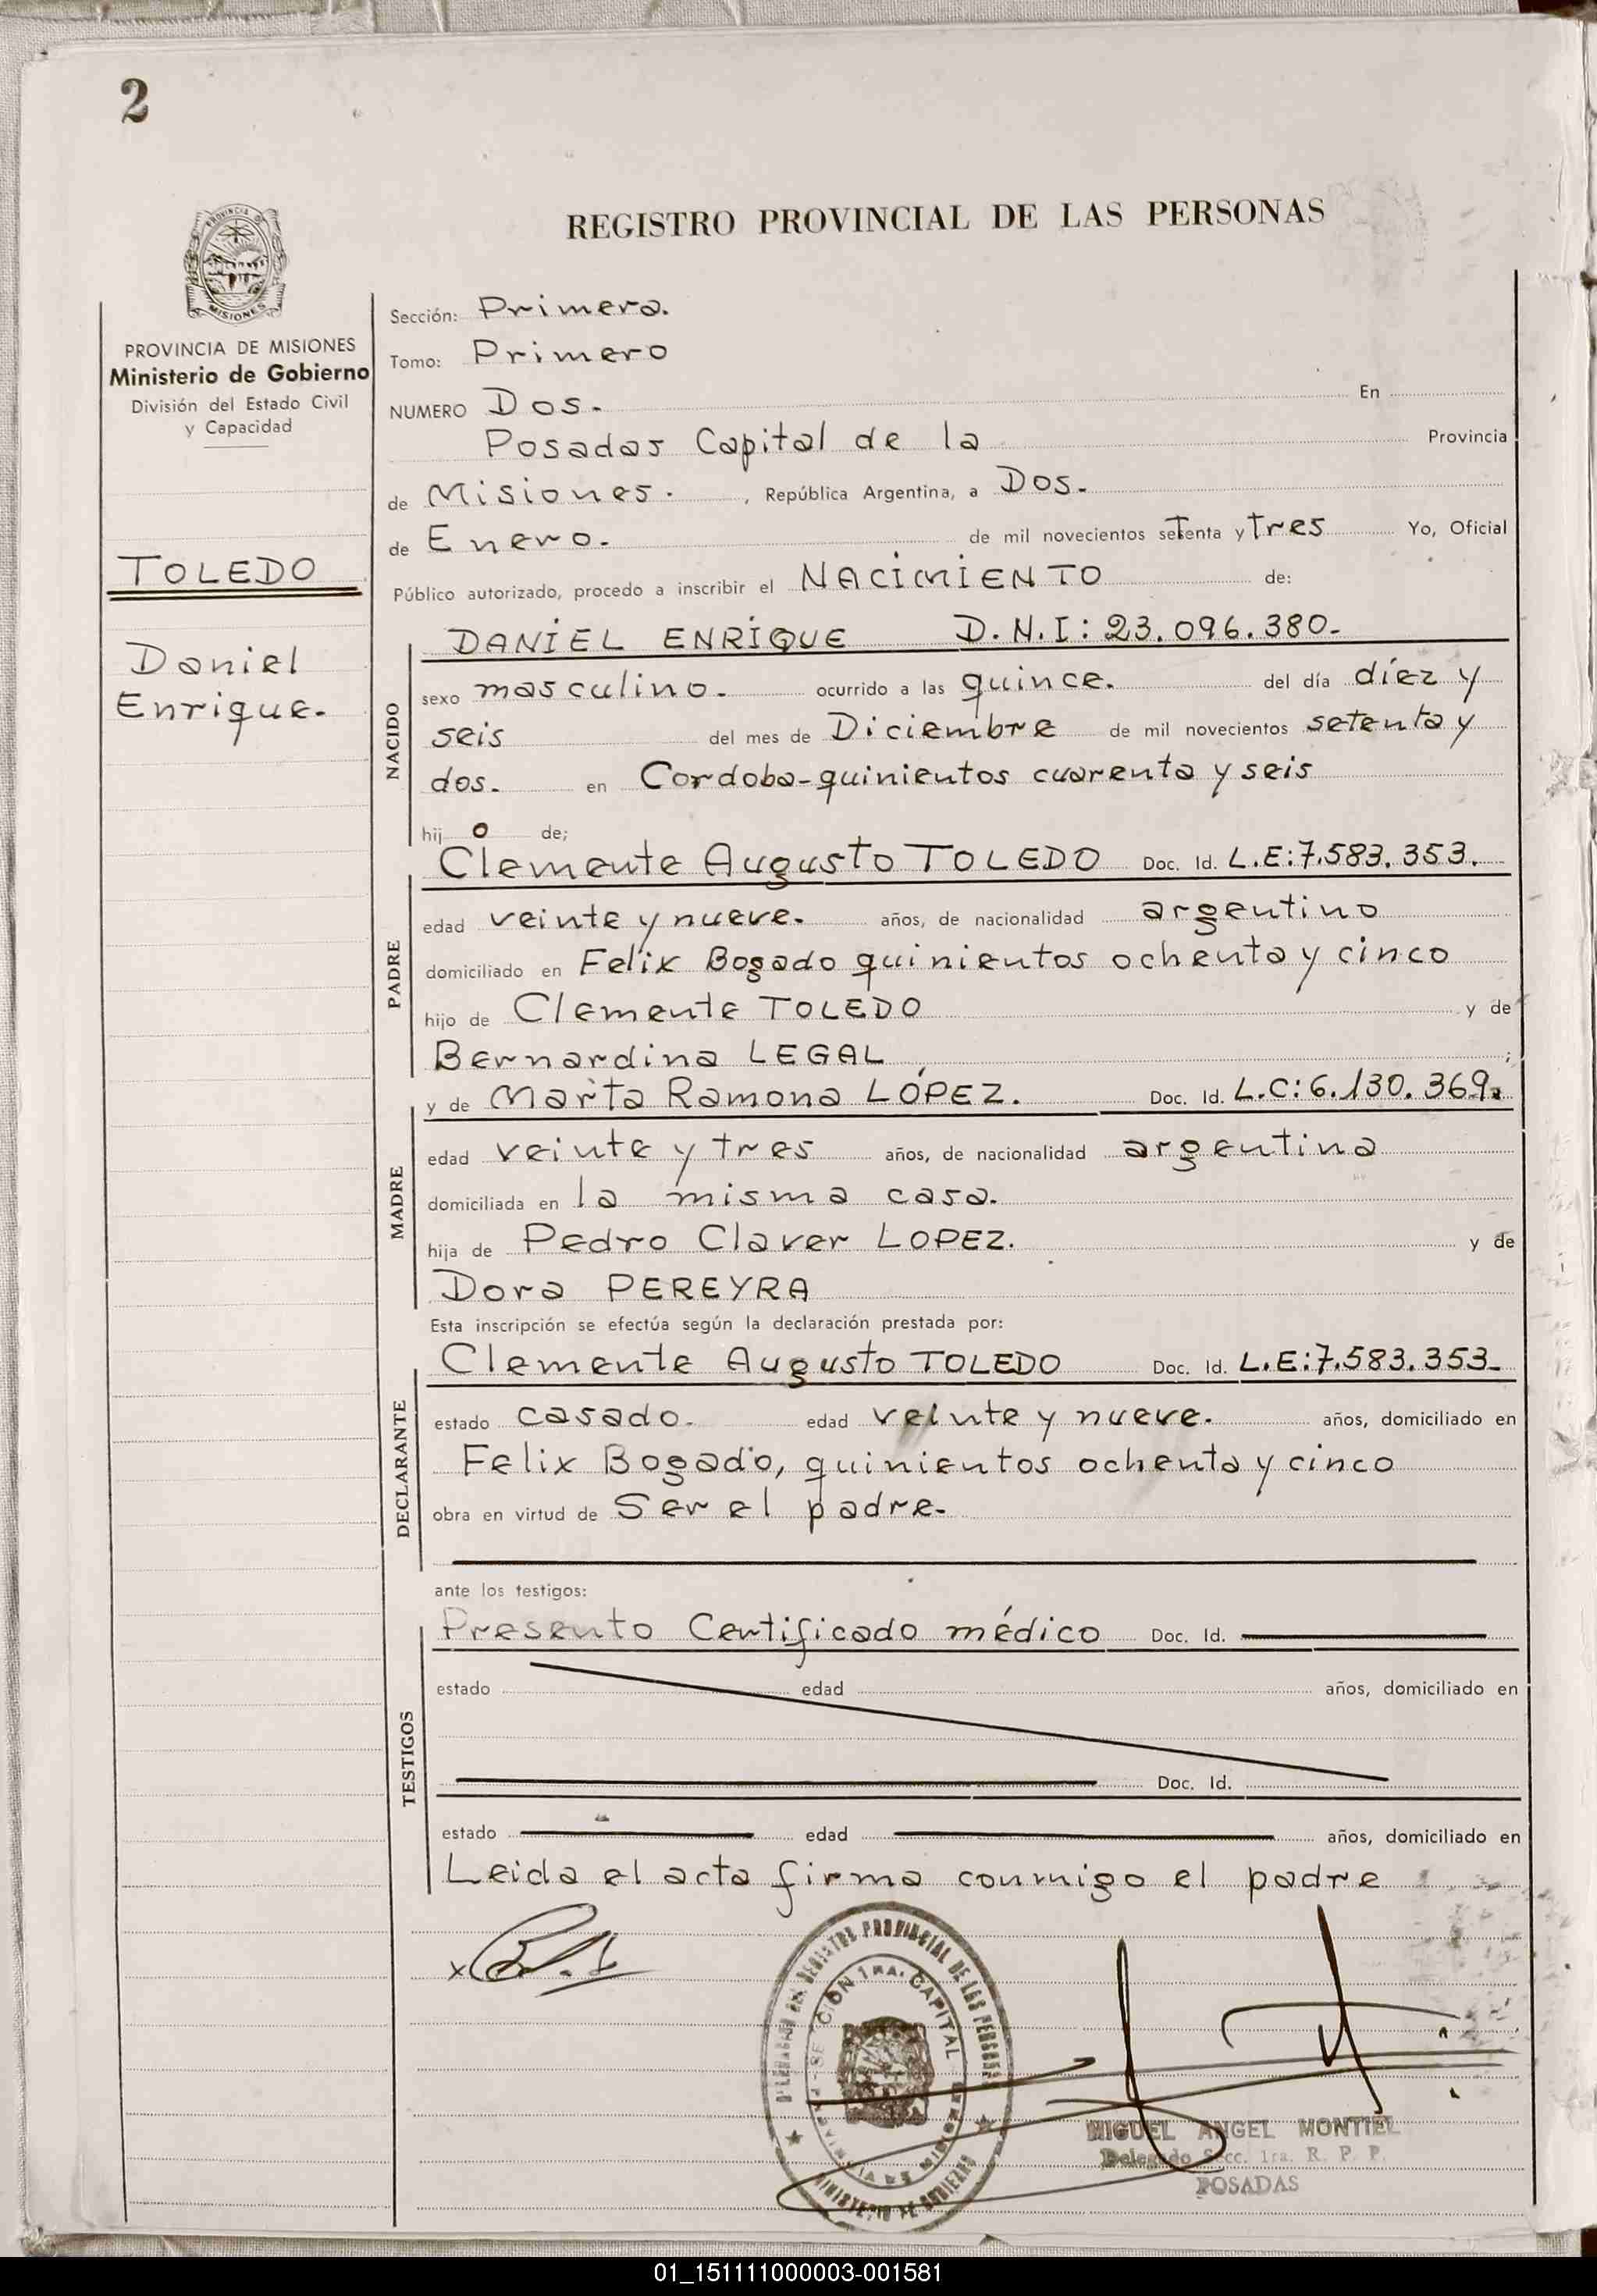 2
REGISTRO PROVINCIAL DE LAS PERSONAS
PROVINCIA DE
MISIONES
PROVINCIA DE MISIONES
Ministerio de Gobierno
División del Estado Civil
y Capacidad
TOLEDO
Daniel
Enrique.
Sección: Primera.
Tomo: Primero
NUMERO Dos. En
Posadas Capital de la Provincia
de Misiones. , República Argentina, a Dos.
de Enero. de mil novecientos setenta y tres Yo, Oficial
Público autorizado, procedo a inscribir el NACIMIENTO de:
NACIDO
DANIEL ENRIQUE D.N.I: 23.096.380.
sexo masculino. ocurrido a las quince. del día díez y
seis del mes de Diciembre de mil novecientos setenta y
dos. en Cordoba-quinientos cuarenta y seis
hij o de;
PADRE
Clemente Augusto TOLEDO Doc. Id. L.E:7.583.353.
edad veinte y nueve. años, de nacionalidad argentino
domiciliado en Felix Bogado quinientos ochenta y cinco
hijo de Clemente TOLEDO y de
Bernardina LEGAL ;
MADRE
y de Marta Ramona LÓPEZ. Doc. Id. L.C:6.130.369.
edad veinte y tres años, de nacionalidad argentina
domiciliada en la misma casa.
hija de Pedro Claver LOPEZ. y de
Dora PEREYRA
Esta inscripción se efectúa según la declaración prestada por:
DECLARANTE
Clemente Augusto TOLEDO Doc. Id. L.E:7.583.353.
estado casado. edad veinte y nueve. años, domiciliado en
Felix Bogado, quinientos ochenta y cinco
obra en virtud de Ser el padre.
ante los testigos:
TESTIGOS
Presento Certificado médico Doc. Id.
estado edad años, domiciliado en
Doc. Id.
estado edad años, domiciliado en
Leida el acta firma conmigo el padre
x
REGISTRO PROVINCIAL DE LAS PERSONAS
SECCION 1RA. CAPITAL
MINISTERIO DE GOBIERNO
MIGUEL ANGEL MONTIEL
Delegado Secc. 1ra. R. P. P.
POSADAS
01_151111000003-001581